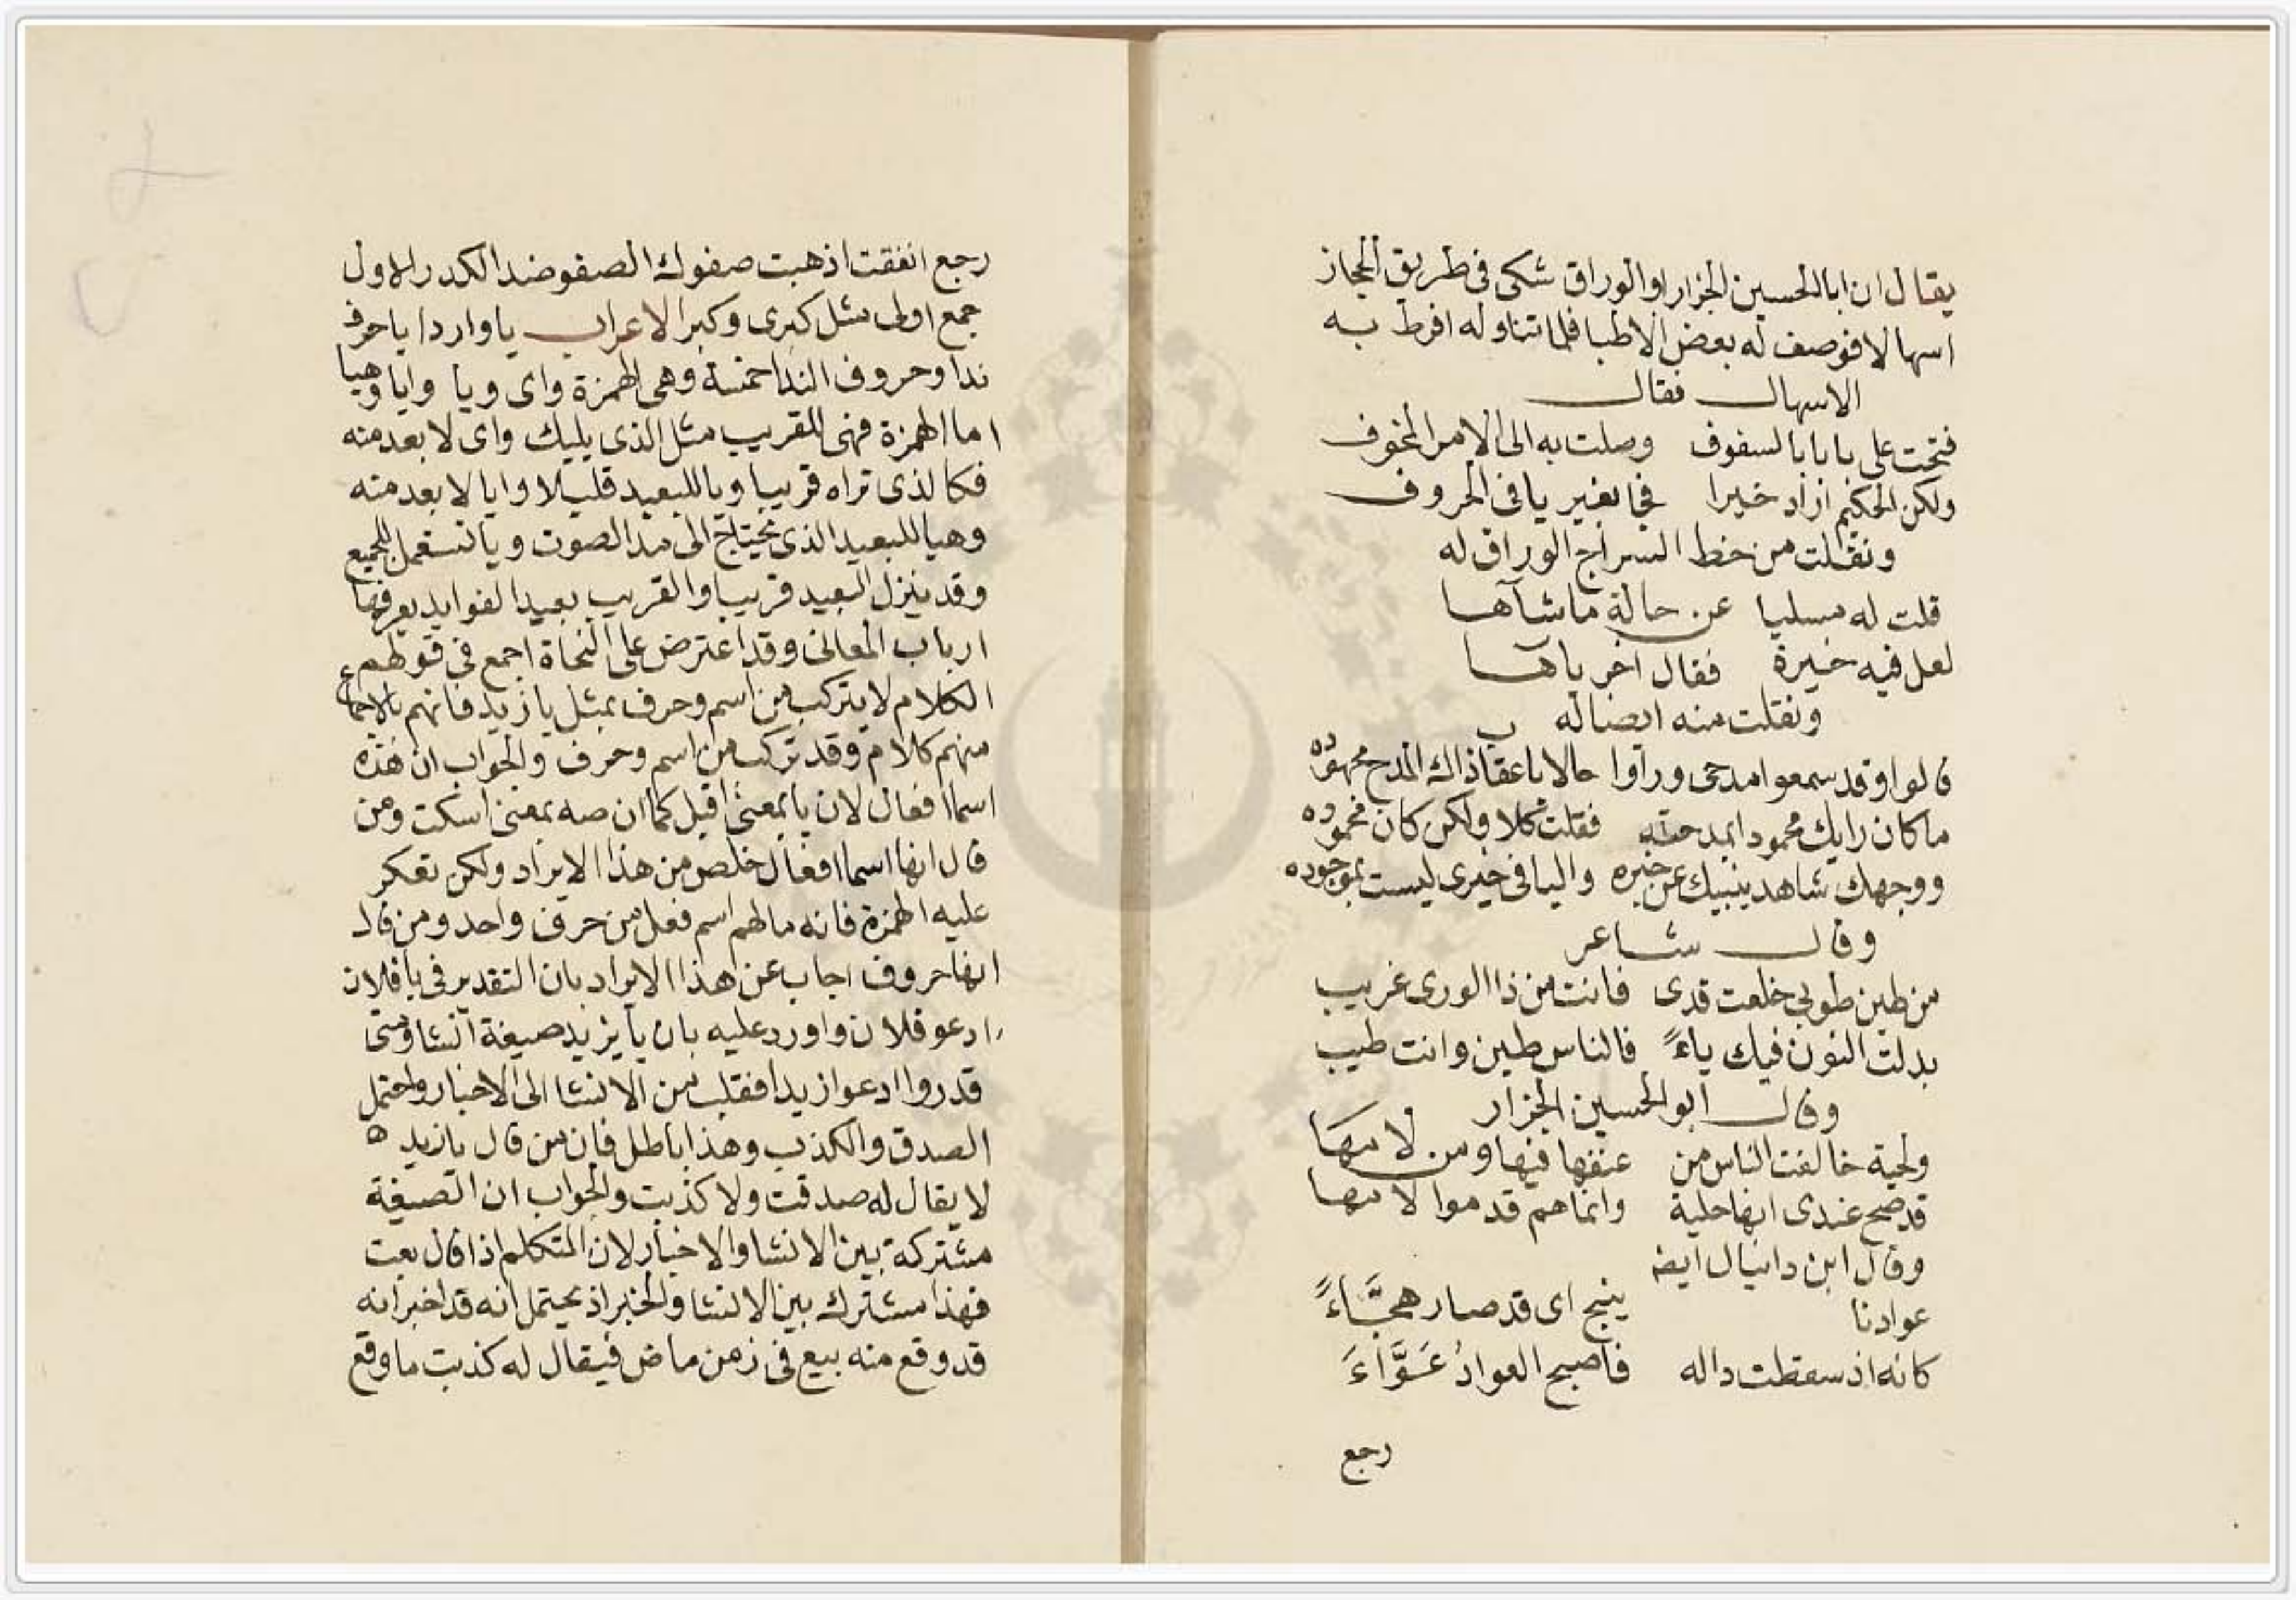 يقال ان ابا الحسين الجزار او الوراق شكى فى طريق الحجاز
اسهالا فوصف له بعض الاطبا فلما تناوله افرط به
الاسهال فقال
فتحت على بابا بالسفوف وصلت به الى الامر المخوف
ولكن الحكيم اراد خيرا فجا بغير يا فى الحروف
ونقلت من خط السراج الوراق له
قلت له مسليا عن حالة ما شآها
لعل فيه خيرة فقال اخر ياها
ونقلت منه ايضا له
قالوا وقد سمعوا مدحى وراوا حالا با عقاذاك المدح مجهوده
ما كان رايك محمودا بمدحته فقلت كلا ولكن كان محموده
ووجهك شاهد ينبيك عن خبره واليا فى خيرى ليست بموجوده
وقال شاعر
من طين طوبى خلعت قدى فانت من ذا الورى غريب
بدلت النون فيك ياءً فالناس طين وانت طيب
وقال ابو الحسين الجزار
ولحية خالفت الناس من عنفها فيها ومن لامها
قد صح عندى انها حلية وانما هم قدموا لامها
وقال ابن دانيال ايضه
عوادنا ينبج اى قد صار هجَّاءً
كانه اذ سقطت داله فاصبح العوادُ عَوَّاءَ
رجع
رجع انفقت اذهبت صفوك الصفو ضد الكدر الاول
جمع اولى مثل كبرى وكبر الاعراب يا واردا يا حرف
ندا وحروف الندا خمسة وهى الهمزة واى ويا وايا وهيا
اما الهمزة فهى للقريب مثل الذى يليك واى لابعد منه
فكالذى تراه قريبا ويا للبعيد قليلا وايا لابعد منه
وهيا للبعيد الذى يحتاج الى مد الصوت ويا تستعمل للجميع
وقد ينزل البعيد قريبا والقريب بعيدا لفوايد يعرفها
ارباب المعانى وقد اعترض على النحاة اجمع فى قولهم
الكلام لا يتركب من اسم وحرف بمثل يا زيد فانهم بالاجماع
منهم كلام وقد تركب من اسم وحرف والجواب ان هذه
اسما افعال لان يا بمعنى اقبل كما ان صه بمعنى اسكت ومن
قال انها اسما افعال خلص من هذا الايراد ولكن تعكر
عليه الهمزة فانه ما لهم اسم فعل من حرف واحد ومن قال
انها حروف اجاب عن هذا الايراد بان التقدير فى يا فلان
ادعو فلان واورد عليه بان يا يزيد صيغة انشا ومتى
قدروا ادعوا زيدا فقلب من الانشا الى الاخبار واحتمل
الصدق والكذب وهذا باطل فان من قال يا زيد ه
لا يقال له صدقت ولا كذبت والجواب ان الصيغة
مشتركة بين الانشا والاخبار لان المتكلم اذا قال بعت
فهذا مشترك بين الانشا والخبر اذ يحتمل انه قد اخبر انه
قد وقع منه بيع فى زمن ماض فيقال له كذبت ما وقع